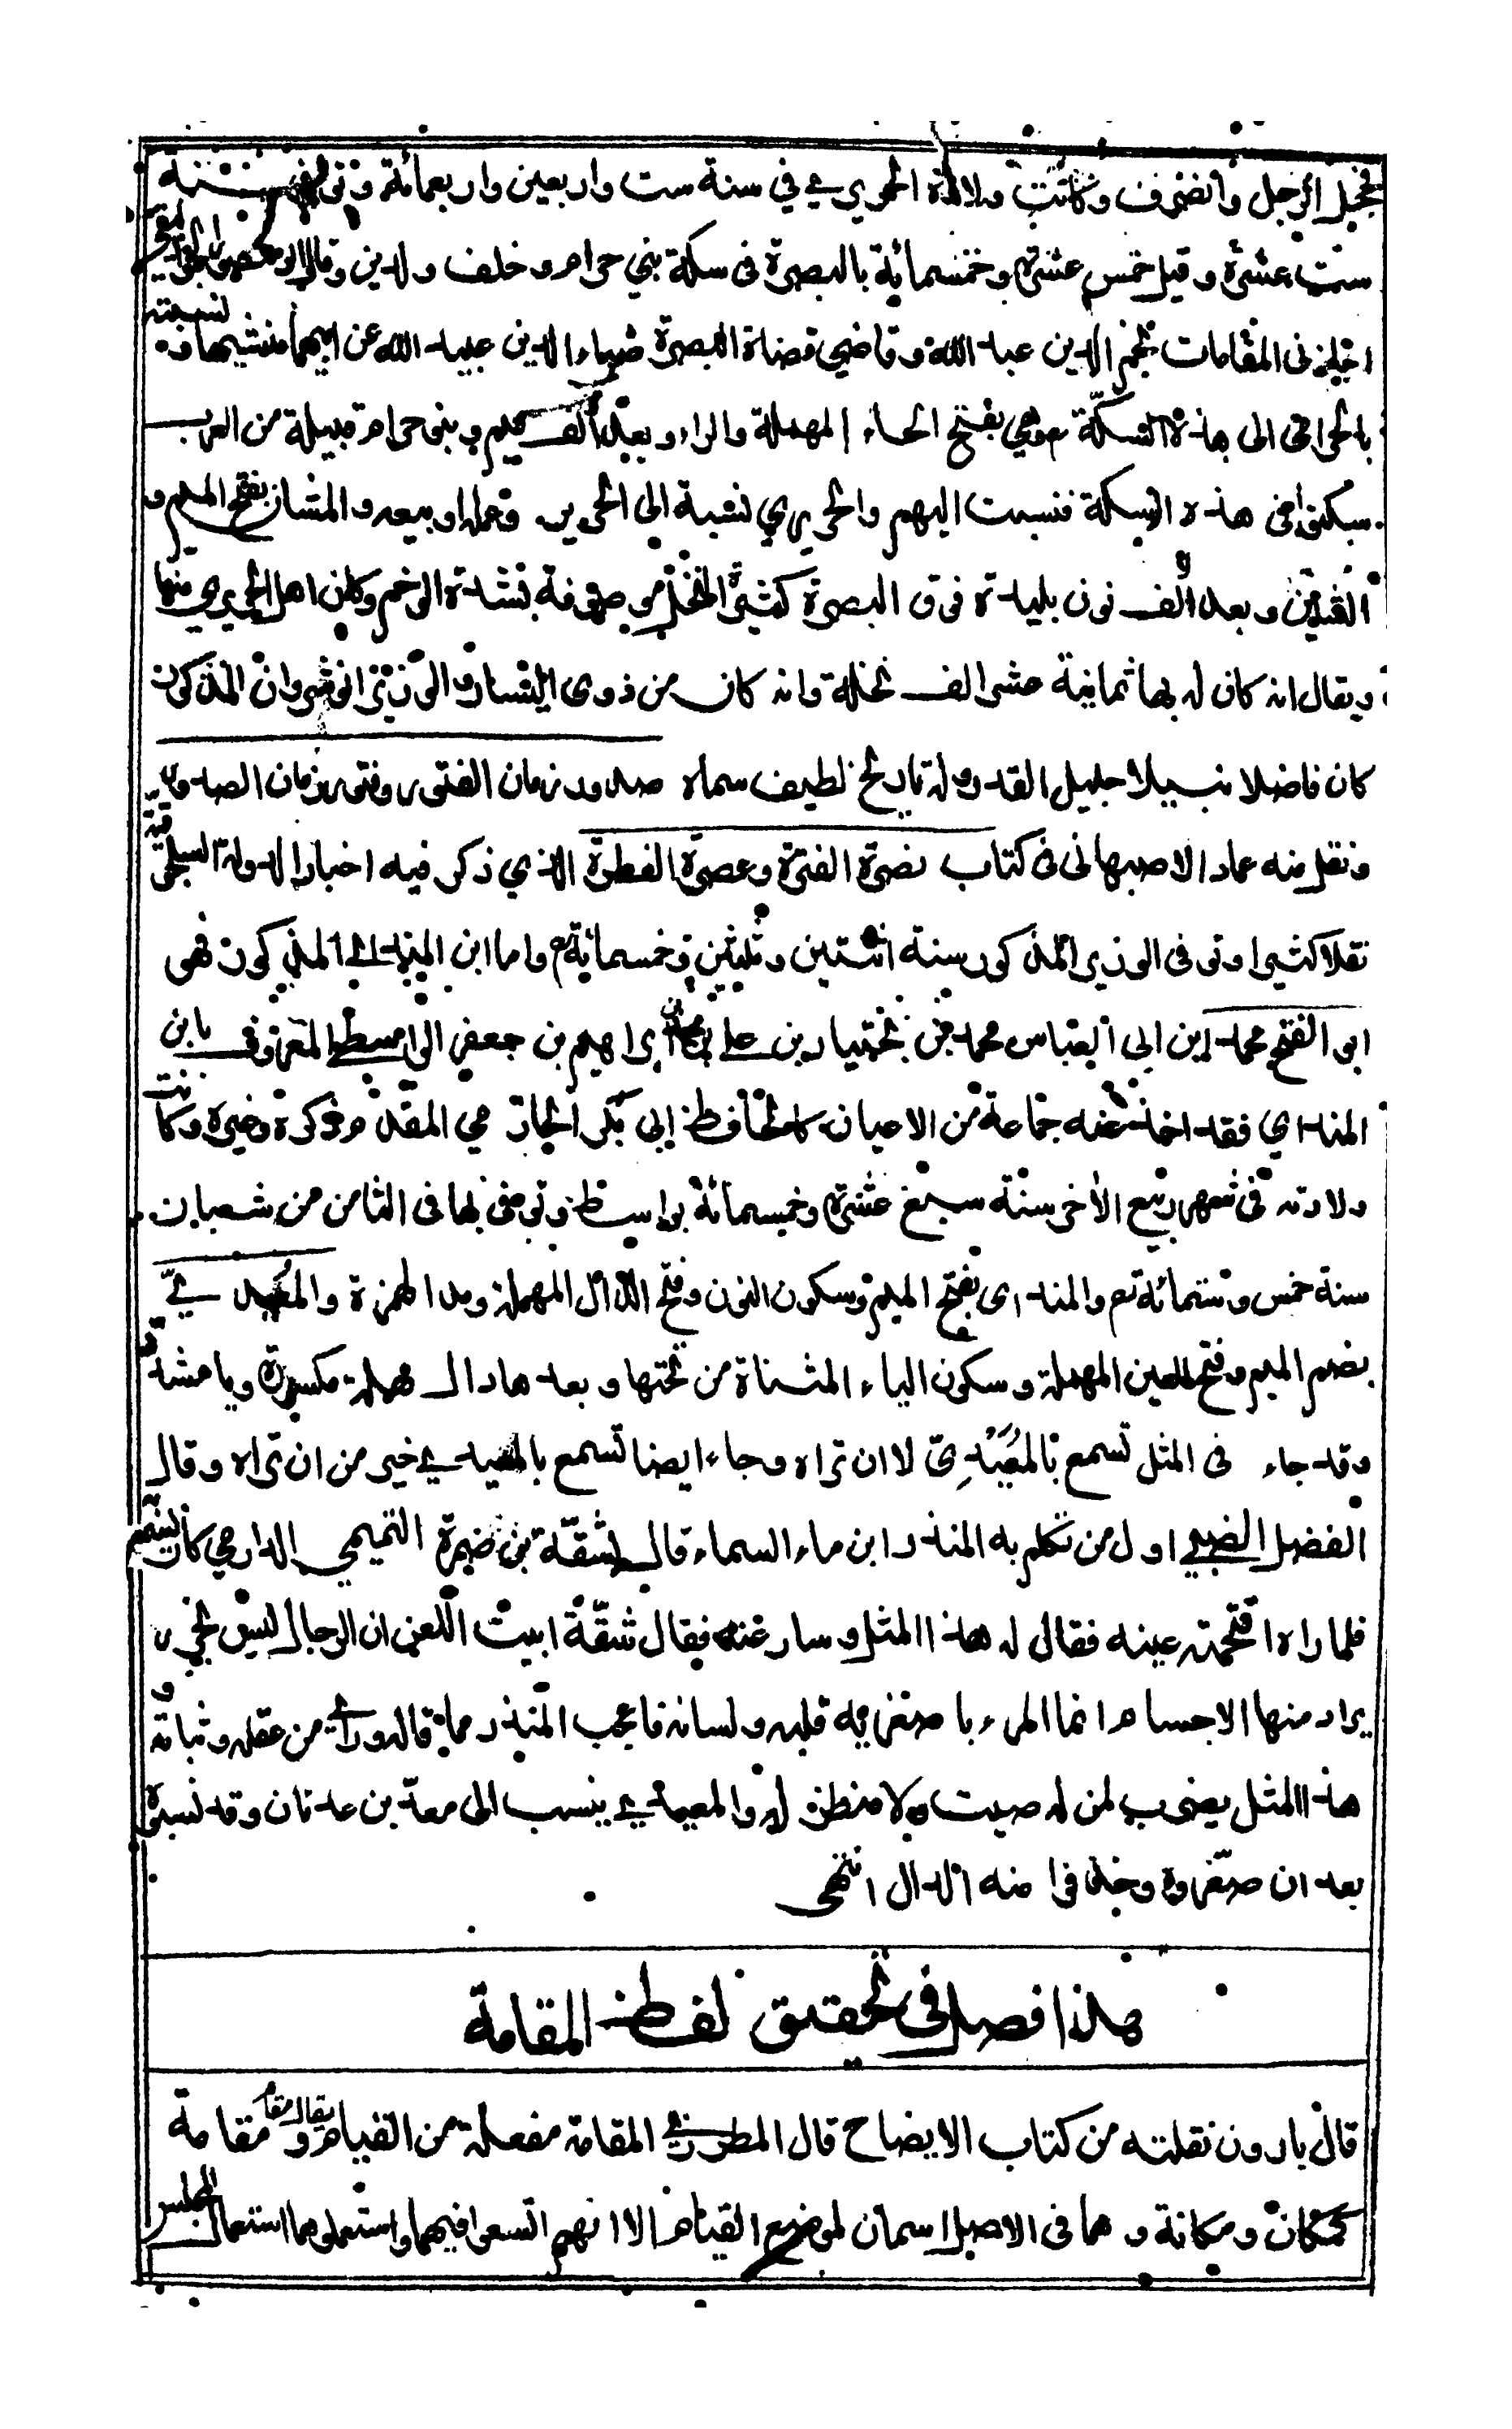 فخجل الرجل وانصرف وكانت ولادة الحريري في سنة ست واربعين واربعمائة وتوفي سنة
ست عشرة وقيل خمس عشرة وخمسمائة بالبصرة في سكة بني حرام وخلف ولدين وقال ابو منصور الجواليقي
اجازني المقامات نجم الدين عبد الله وقاضي قضاة البصرة ضياء الدين عبيد الله عن ابيهما منشيها و نسبته
بالحرامي الى هذه السكة وهي بفتح الحاء المهملة والراء وبعد الف ميم وبنو حرام قبيلة من العرب
سكنوا في هذه السكة فنسبت اليهم والحريري نسبة الى الحرير وعمله او بيعه والمشان بفتح الميم و
الشين وبعد الف نون بليدة فوق البصرة كثيرة النخل موصوفة بشدة الوخم وكان اهل الحريري منها
ويقال انه كان له بها ثمانية عشر الف نخلة وانه كان من ذوي اليسار والوزير انوشروان المذكور
كان فاضلا نبيلا جليل القدر وله تاريخ لطيف سماه صدور زمان الفتور وفتور زمان الصدور
ونقل منه عماد الاصبهاني في كتاب نصرة الفترة وعصرة الفطرة الذي ذكر فيه اخبار الدولة السلجوقية
نقلا كثيرا وتوفي الوزير المذكور سنة اثنتين وثلثين وخمسمائة واما ابن المنداي المذكور فهو
ابو الفتح محمد ابن ابي العباس محمد بن بختيار بن علي بن محمد بن ابراهيم بن جعفر الواسطي المعروف بابن
المنداي فقد اخذ عنه جماعة من الاعيان كالحافظ ابي بكر الحازمي المقدم ذكره وغيره وكانت
ولادته في شهر ربيع الاخر سنة سبع عشرة وخمسمائة بواسط وتوفي بها في الثامن من شعبان
سنة خمس وستمائة والمنداي بفتح الميم وسكون النون وفتح الدال المهملة ومد الهمزة والمعيدي
بضم الميم وفتح العين المهملة وسكون الياء المثناة من تحتها وبعدها دال مهملة مكسورة وياء مشددة
وقد جاء في المثل تسمع بالمعيدي لا ان تراه وجاء ايضا تسمع بالمعيدي خير من ان تراه وقال
الفضل الضبي اول من تكلم به المنذر ابن ماء السماء قال لشقة بن ضمرة التميمي الدارمي كان
فلما راه اقتحمته عينه فقال له هذا المثل وسار عنه فقال شقة ابيت اللعن ان الرجال ليس بجزر
يراد منها الاجسام انما المرء باصغريه قلبه ولسانه فاعجب المنذر مما قاله وراى من عقله وثباته و
هذا المثل يضرب لمن له صيت ولا منظر له والمعيدي ينسب الى معد بن عدنان وقد نسبوه
بعد ان صغروه وخففوا منه الدال انتهى
هذا فصل في تحقيق لفظ المقامة
قال بارون نقلته من كتاب الايضاح قال المطرزي المقامة مفعلة من القيام ويقال مقام مقامة
كمكان ومكانة وهما في الاصل اسمان لموضع القيام الا انهم اتسعوا فيهما واستعملوهما استعمال المجلس